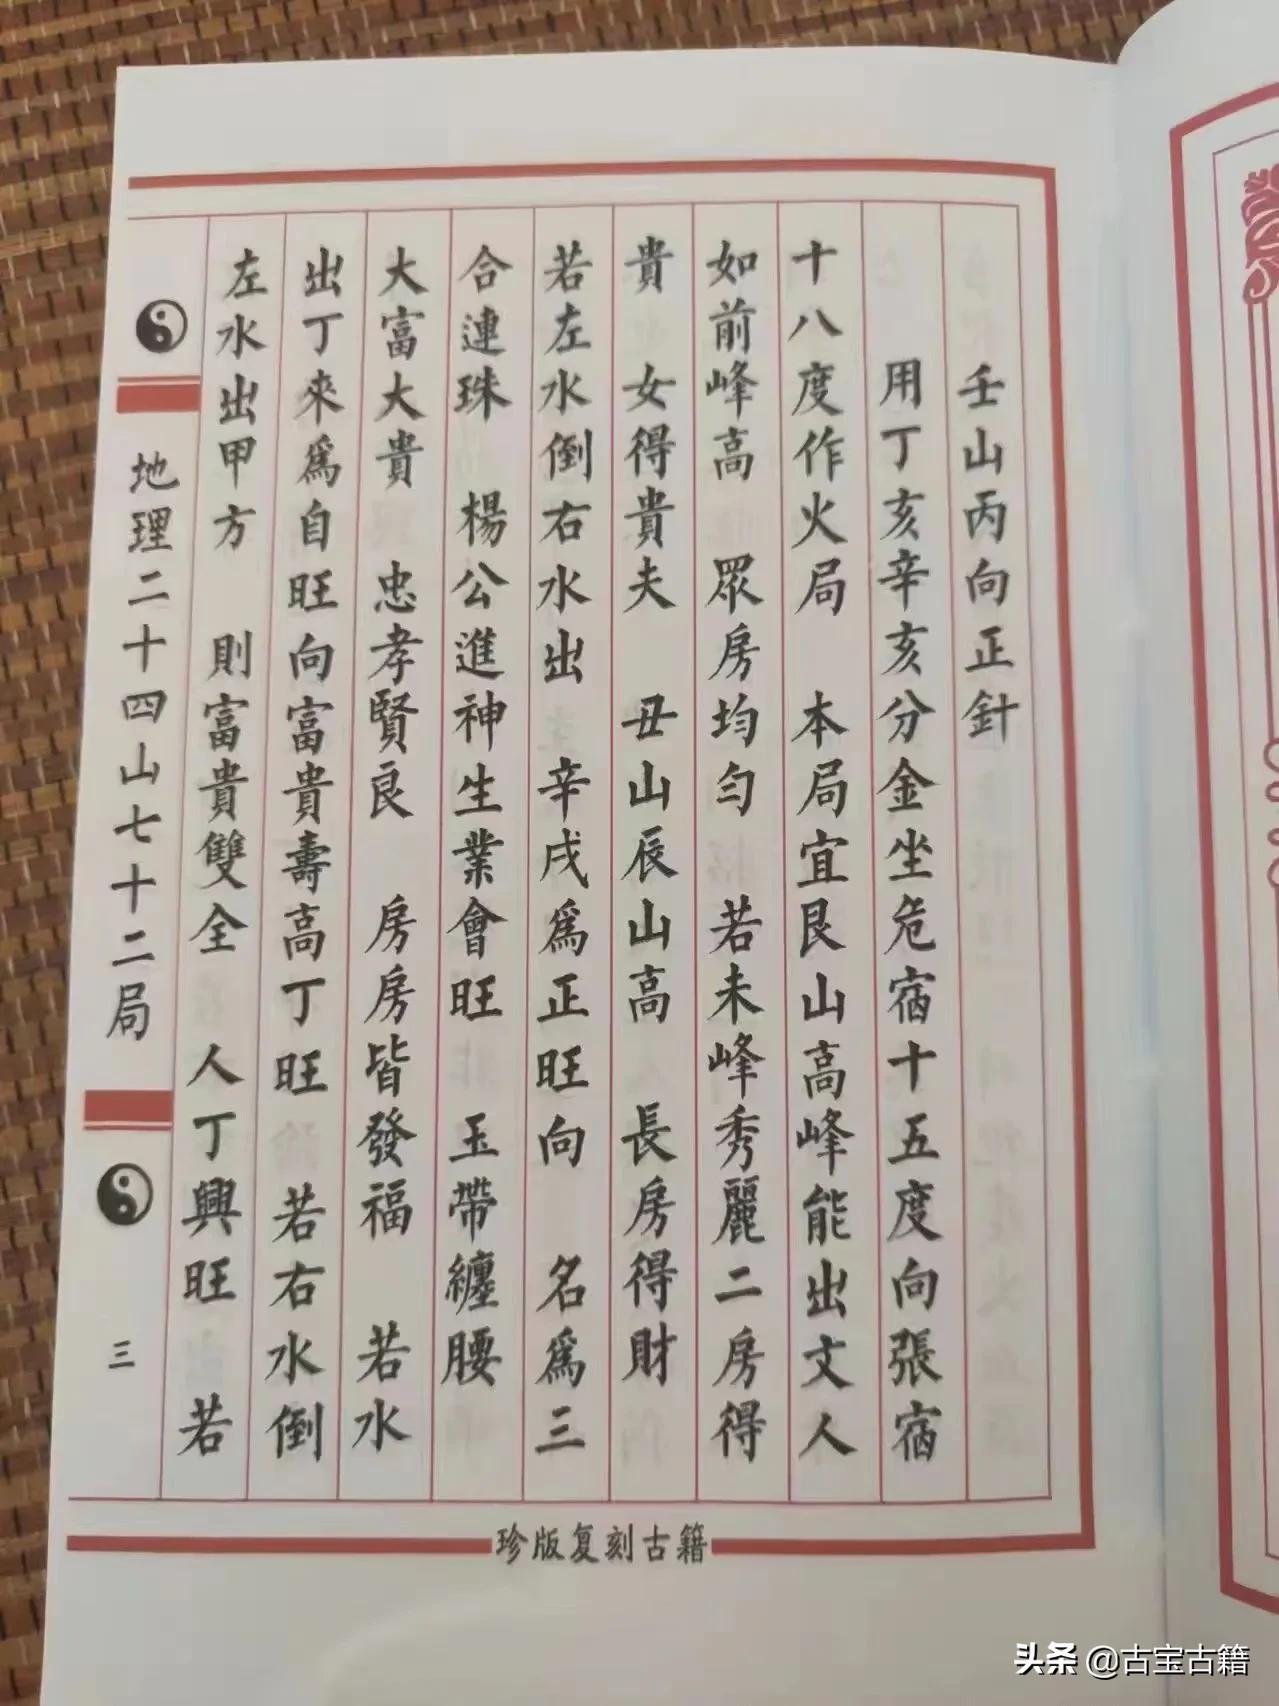 壬山丙向正針
用丁亥辛亥分金坐危宿十五度向張宿
十八度作火局　本局宜艮山高峰能出文人
如前峰高　眾房均勻　若未峰秀麗二房得
貴　女得貴夫　丑山辰山高　長房得財
若左水倒右水出　辛戌為正旺向　名為三
合連珠　楊公進神生業會旺　玉帶纏腰
大富大貴　忠孝賢良　房房皆發福　若水
出丁來為自旺向富貴壽高丁旺　若右水倒
左水出甲方　則富貴雙全　人丁興旺　若
地理二十四山七十二局
三
珍版复刻古籍
头条 @古宝古籍